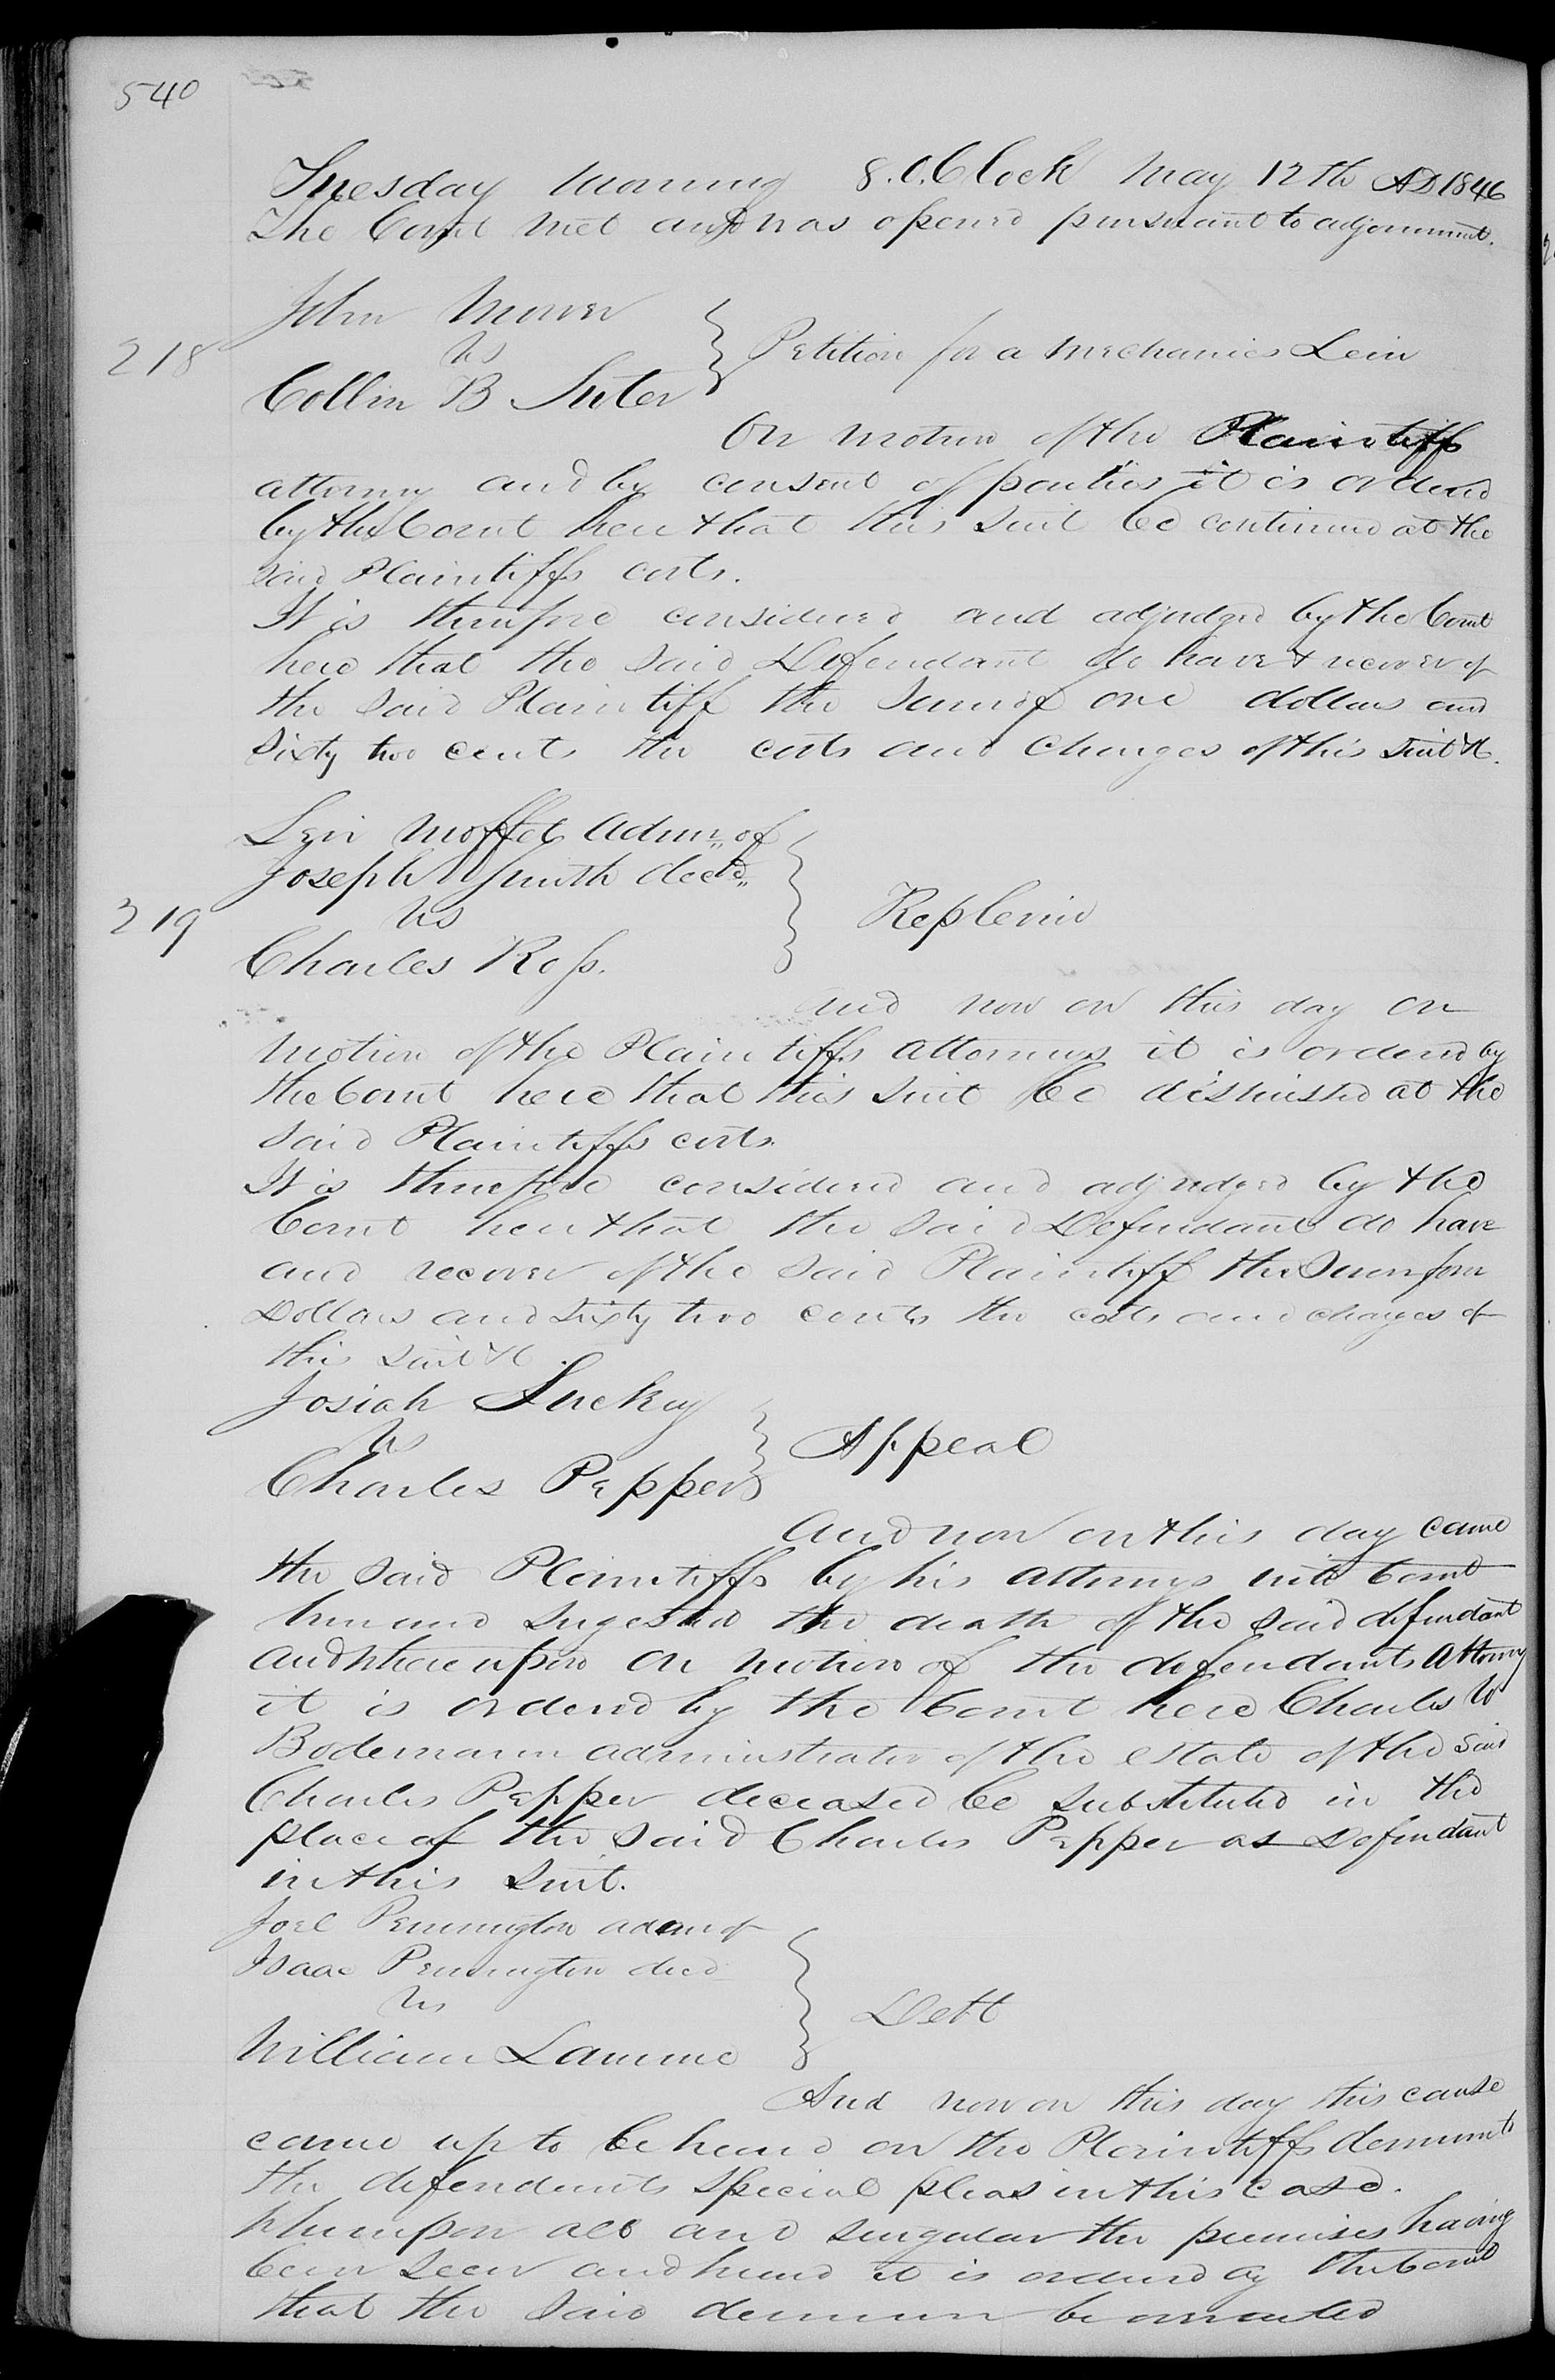 540
Tuesday Morning 8. O. Clock May 12th AD 1846
The Court met and was opened pursuant to adjournment.
John Mower
218
vs
Petition for a Mechanics Lein
Collin B Suter
On motion of the Plaintiffs
attorney and by consent of parties it is ordered
by the Court here that this suit be continued at the
said Plaintiffs costs.
It is therefore considered and adjudged by the Court
here that the said Defendant do have & recover of
the said Plaintiff the sum of one dollars and
sixty two cents the costs and charges of this suit &c.
Levi Moffet Admr,, of
Joseph Smith decd,,
219
vs
Replevin
Charles Ross.
And now on this day on
motion of the Plaintiffs attorneys it is ordered by
the Court here that this suit be dismissed at the
said Plaintiffs costs.
It is therefore considered and adjudged by the
Court here that the said Defendant do have
and recover of the said Plaintiff the sum four
Dollars and sixty two cents the costs and charges of
this suit &c.
Josiah Luckey
vs
Appeal
Charles Peppers
And now on this day came
the said Plaintiffs by his attorneys into Court
here and sugested the death of the said defendant
and thereupon on motion of the defendants Attorney
it is ordered by the Court here Charles W
Bodemann administrator of the estate of the said
Charles Pepper deceased be substituted in the
place of the said Charles Pepper as Defendant
in this suit.
Joel Pennington adam of
Isaac Pennington decd
vs
Debt
William Lamme
And now on this day this cause
came up to be heard on the Plaintiffs
the defendants special pleas in this case.
Whereupon all and singular the premises having
been seen and heard it is ordered by the Court
that the said demurrer be